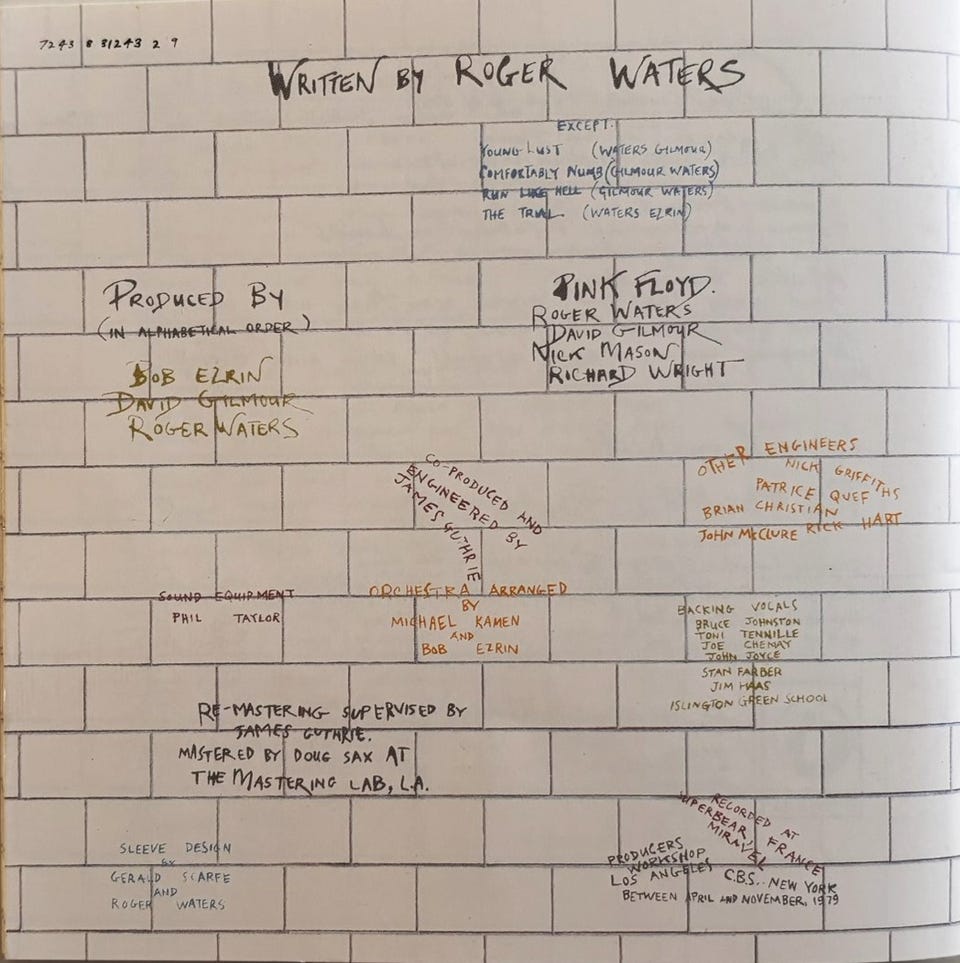 7243 8 31243 2 9
WRITTEN BY ROGER WATERS
EXCEPT.
YOUNG LUST (WATERS GILMOUR)
COMFORTABLY NUMB (GILMOUR WATERS)
RUN LIKE HELL (GILMOUR WATERS)
THE TRIAL (WATERS EZRIN)
PRODUCED BY
(IN ALPHABETICAL ORDER)
BOB EZRIN
DAVID GILMOUR
ROGER WATERS
PINK FLOYD.
ROGER WATERS
DAVID GILMOUR
NICK MASON
RICHARD WRIGHT
CO-PRODUCED AND
ENGINEERED BY
JAMES GUTHRIE
OTHER ENGINEERS
NICK GRIFFITHS
PATRICE QUEF
BRIAN CHRISTIAN
JOHN McCLURE RICK HART
SOUND EQUIPMENT
PHIL TAYLOR
ORCHESTRA ARRANGED
BY
MICHAEL KAMEN
AND
BOB EZRIN
BACKING VOCALS
BRUCE JOHNSTON
TONI TENNILLE
JOE CHEMAY
JOHN JOYCE
STAN FARBER
JIM HAAS
ISLINGTON GREEN SCHOOL
RE-MASTERING SUPERVISED BY
JAMES GUTHRIE.
MASTERED BY DOUG SAX AT
THE MASTERING LAB, L.A.
SLEEVE DESIGN
BY
GERALD SCARFE
AND
ROGER WATERS
RECORDED AT
SUPERBEAR, FRANCE
MIRAVEL
PRODUCERS
WORKSHOP
LOS ANGELES C.B.S.. NEW YORK
BETWEEN APRIL AND NOVEMBER, 1979